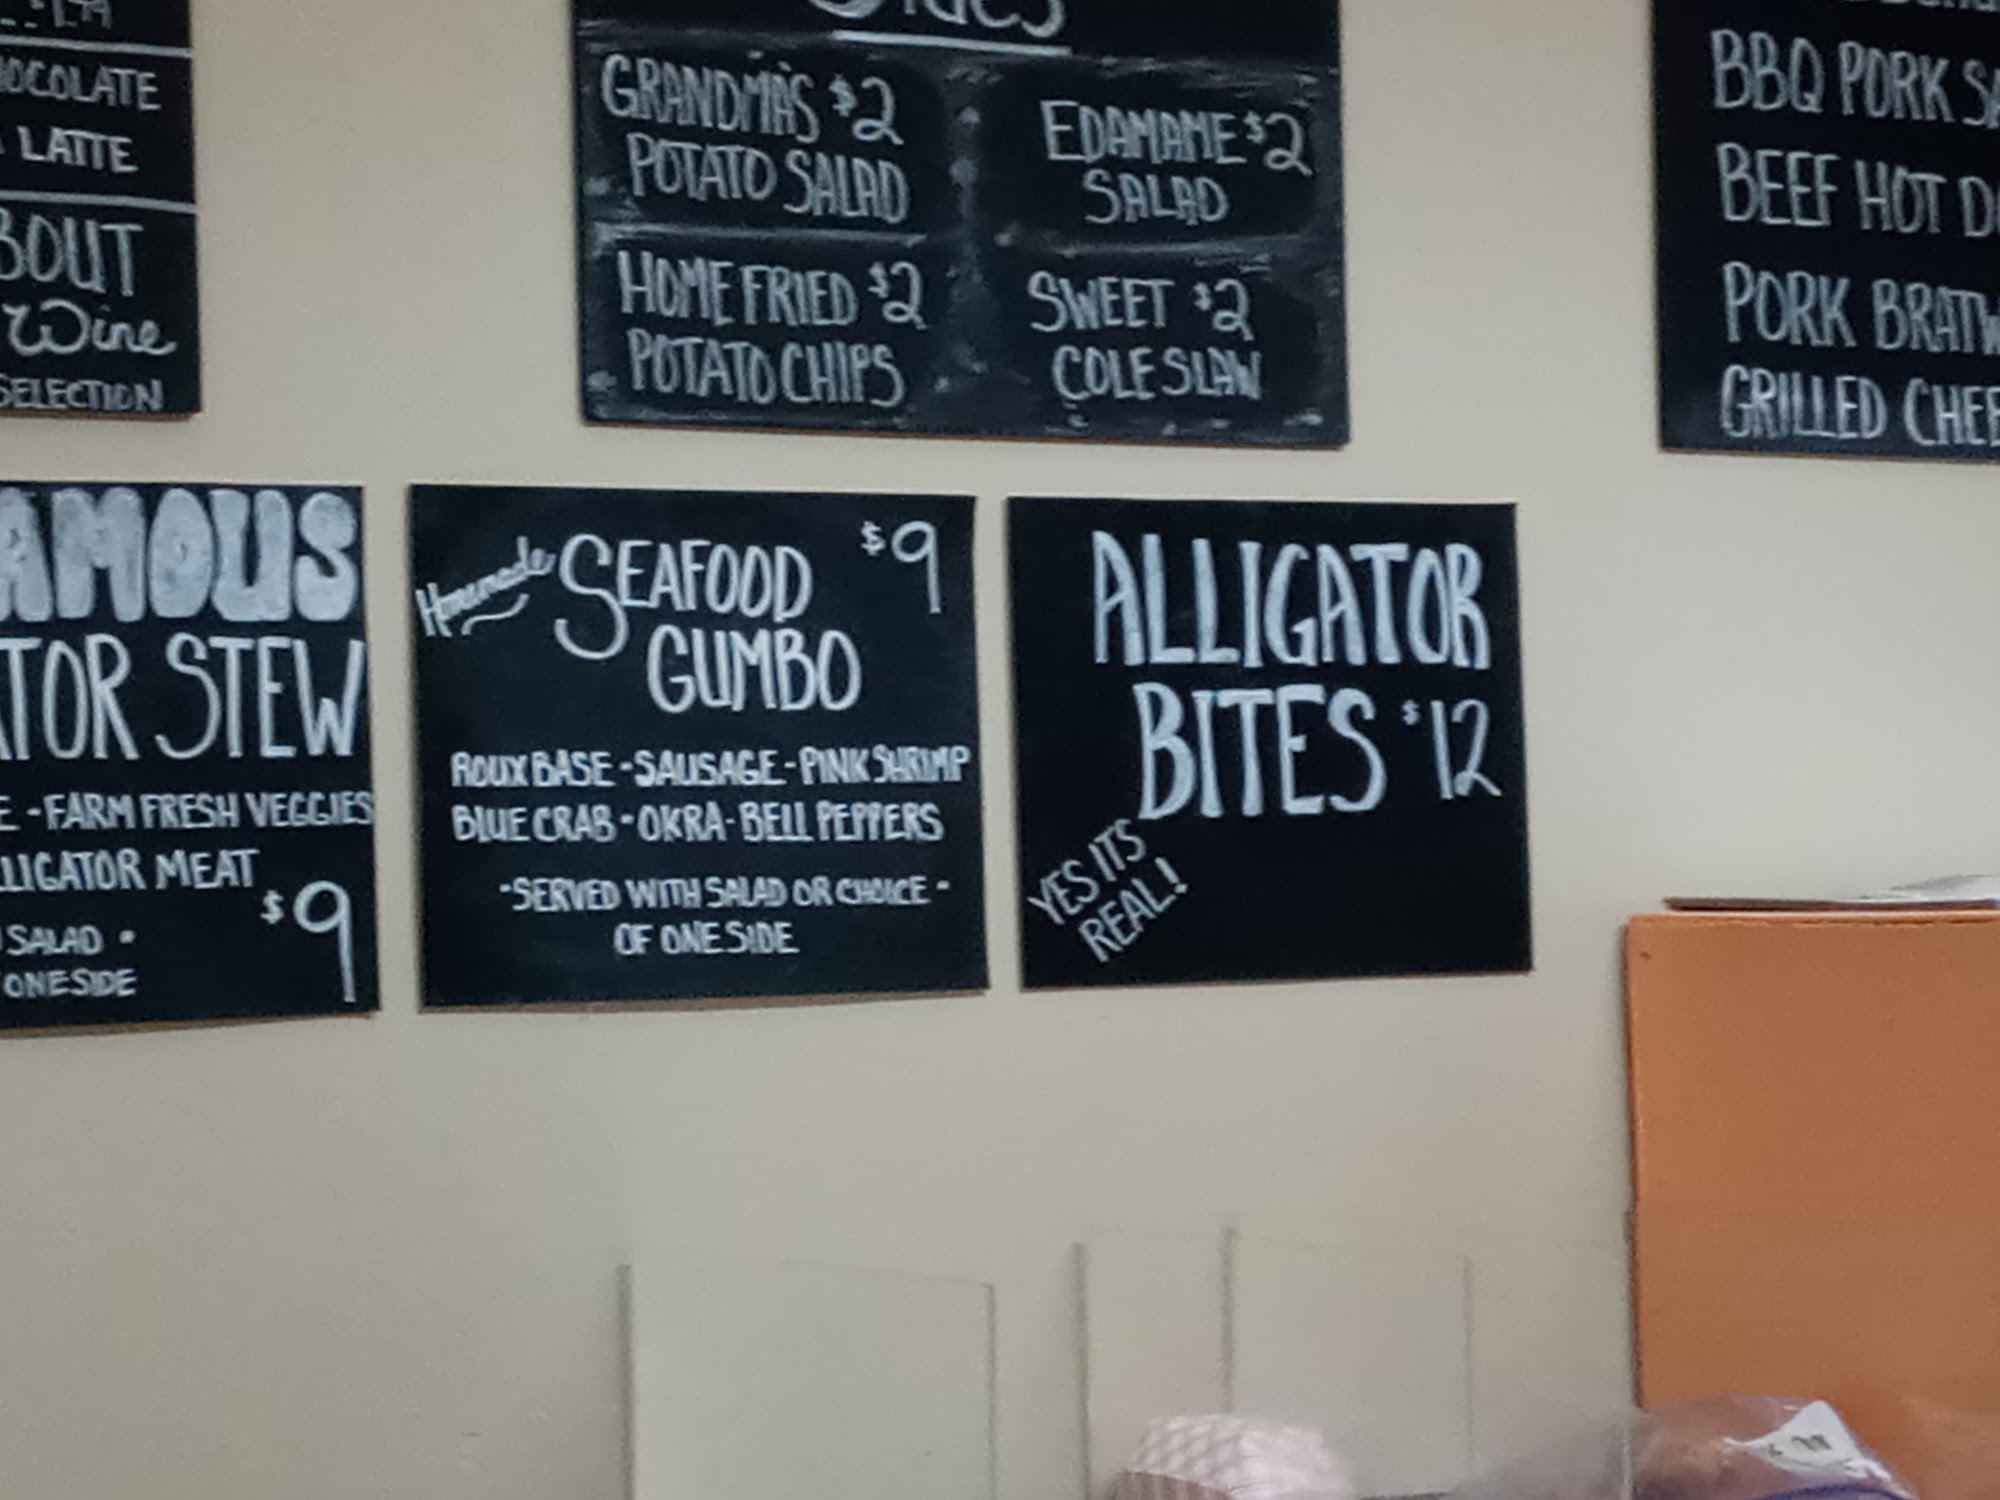 $1.79
LATTE
Wine
SELECTION
Sides
GRANDMA'S $2
POTATO SALAD
EDAMAME $2
SALAD
HOME FRIED $2
POTATO CHIPS
SWEET $2
COLE SLAW
BBQ PORK
BEEF HOT
PORK
GRILLED
STEW
- FARM FRESH VEGGIES
MEAT
$9
SALAD -
ONE SIDE
Homemade SEAFOOD $9
GUMBO
ROUX BASE - SAUSAGE - PINK SHRIMP
BLUE CRAB - OKRA - BELL PEPPERS
- SERVED WITH SALAD OR CHOICE -
OF ONE SIDE
ALLIGATOR
BITES $12
YES ITS
REAL!